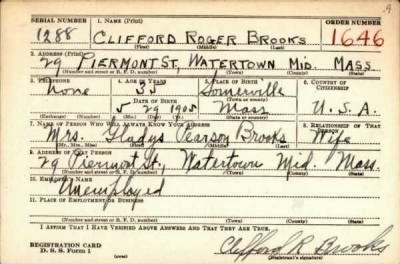 SERIAL NUMBER 1. NAME (Print) ORDER NUMBER
1288 CLIFFORD ROGER BROOKS 1646
(First) (Middle) (Last)
2. ADDRESS (Print)
29 PIERMONT ST, WATERTOWN MID. MASS.
(Number and street or R. F. D. number) (Town) (County) (State)
3. TELEPHONE 4. AGE IN YEARS 5. PLACE OF BIRTH 6. COUNTRY OF CITIZENSHIP
None 35 Somerville
DATE OF BIRTH (Town or county)
5 29 1905 Mass U. S. A.
(Mo.) (Day) (Yr.) (State or country)
7. NAME OF PERSON WHO WILL ALWAYS KNOW YOUR ADDRESS 8. RELATIONSHIP OF THAT PERSON
Mrs. Gladys Pearson Brooks Wife
(Mr., Mrs., Miss) (First) (Middle) (Last)
9. ADDRESS OF THAT PERSON
29 Piermont St., Watertown Mid. Mass.
(Number and street or R. F. D. number) (Town) (County) (State)
10. EMPLOYER'S NAME
Unemployed
11. PLACE OF EMPLOYMENT OR BUSINESS
(Number and street or R. F. D. number) (Town) (County) (State)
I AFFIRM THAT I HAVE VERIFIED ABOVE ANSWERS AND THAT THEY ARE TRUE.
REGISTRATION CARD
D. S. S. Form 1 Clifford R. Brooks
(Registrant's signature)